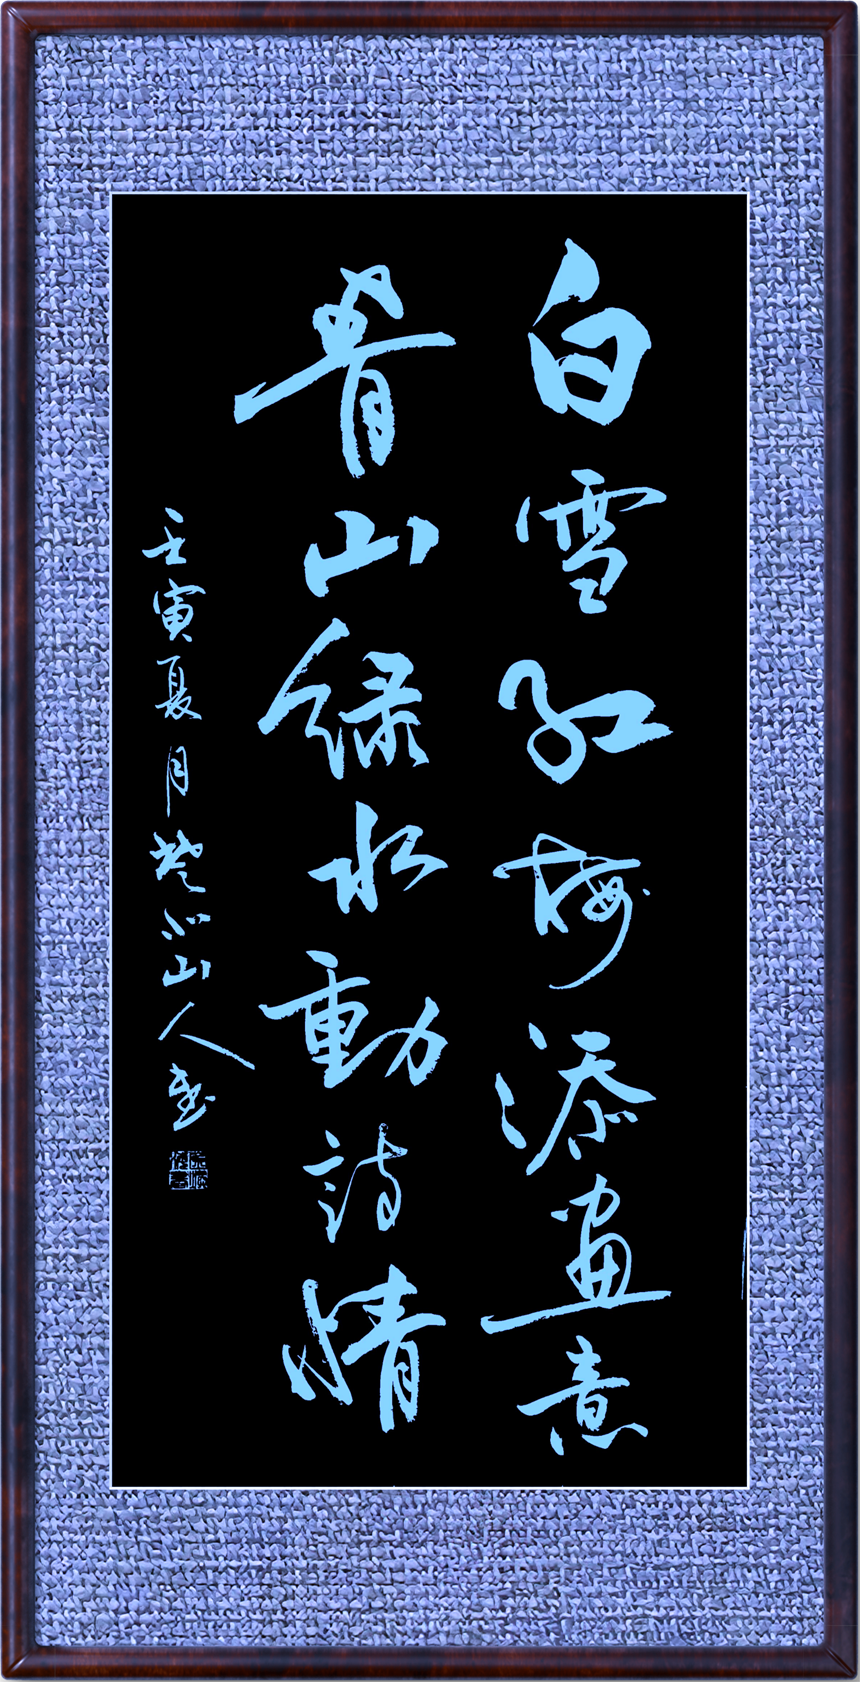 白雪红梅添画意
青山绿水動詩情
壬寅夏月楚山人書